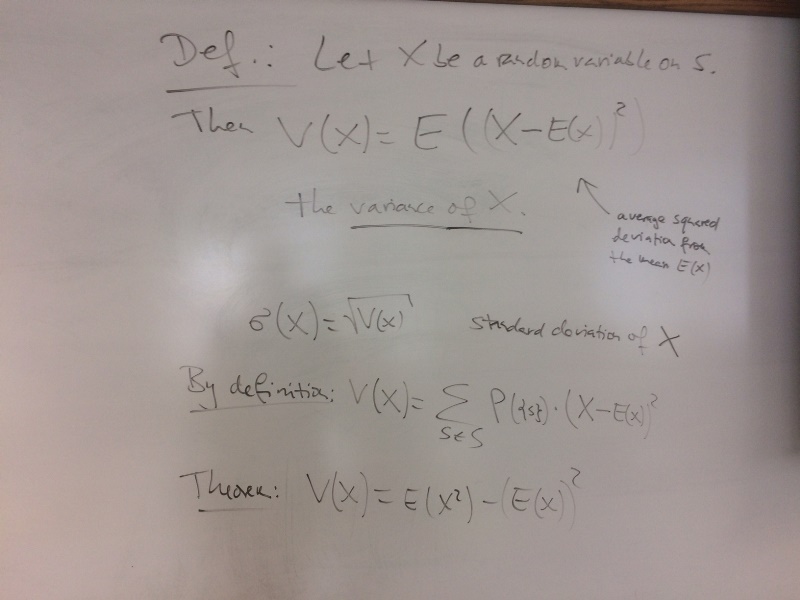 Def.: Let X be a random variable on S.
Then V(X) = E((X-E(X))²)
the variance of X.
average squared
deviation from
the mean E(X)
σ(X) = √V(X)
standard deviation of X
By definition: V(X) = ∑ P({s})·(X-E(X))²
s∈S
Theorem: V(X) = E(X²) - (E(X))²